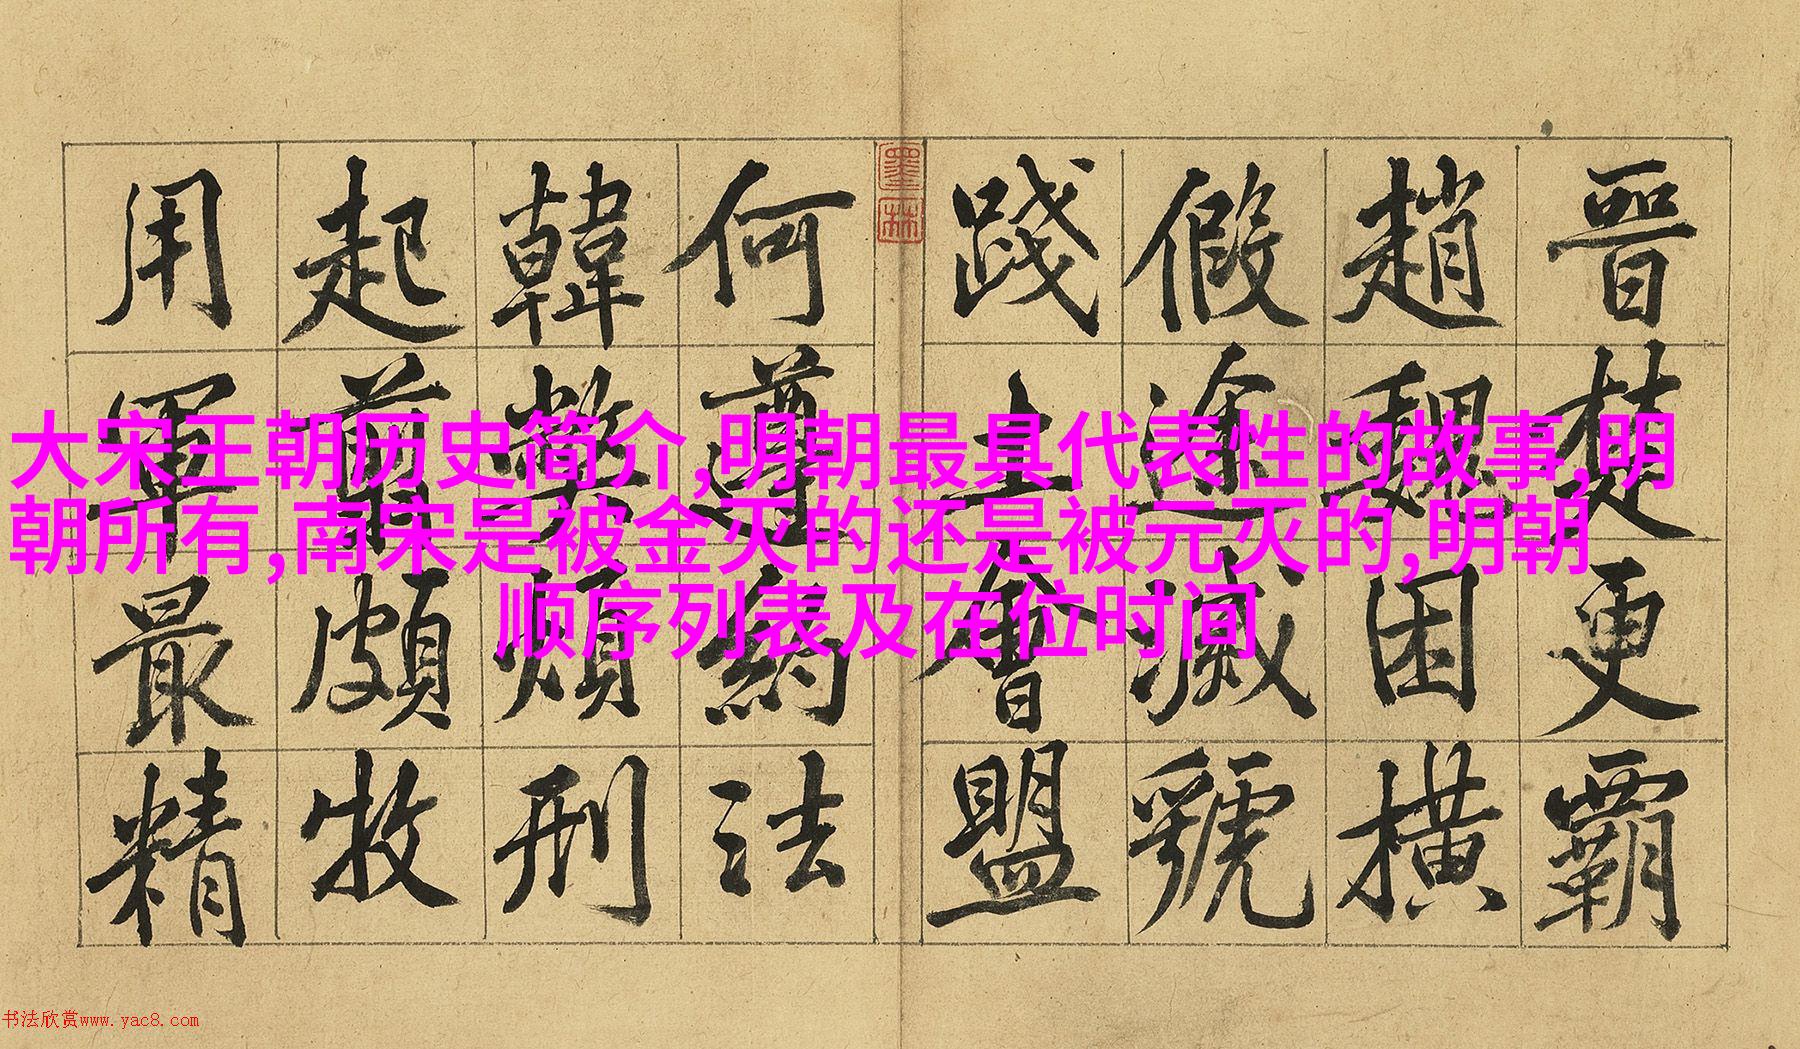 晉楚更霸
趙魏困橫
假途滅虢
踐土會盟
何遵約法
韓弊煩刑
起翦頗牧
用軍最精
墨林
大宋王朝历史简介,明朝最具代表性的故事,明
朝所有,南宋是被金灭的还是被元灭的,明朝
顺序列表及在位时间
书法欣赏www.yac8.com